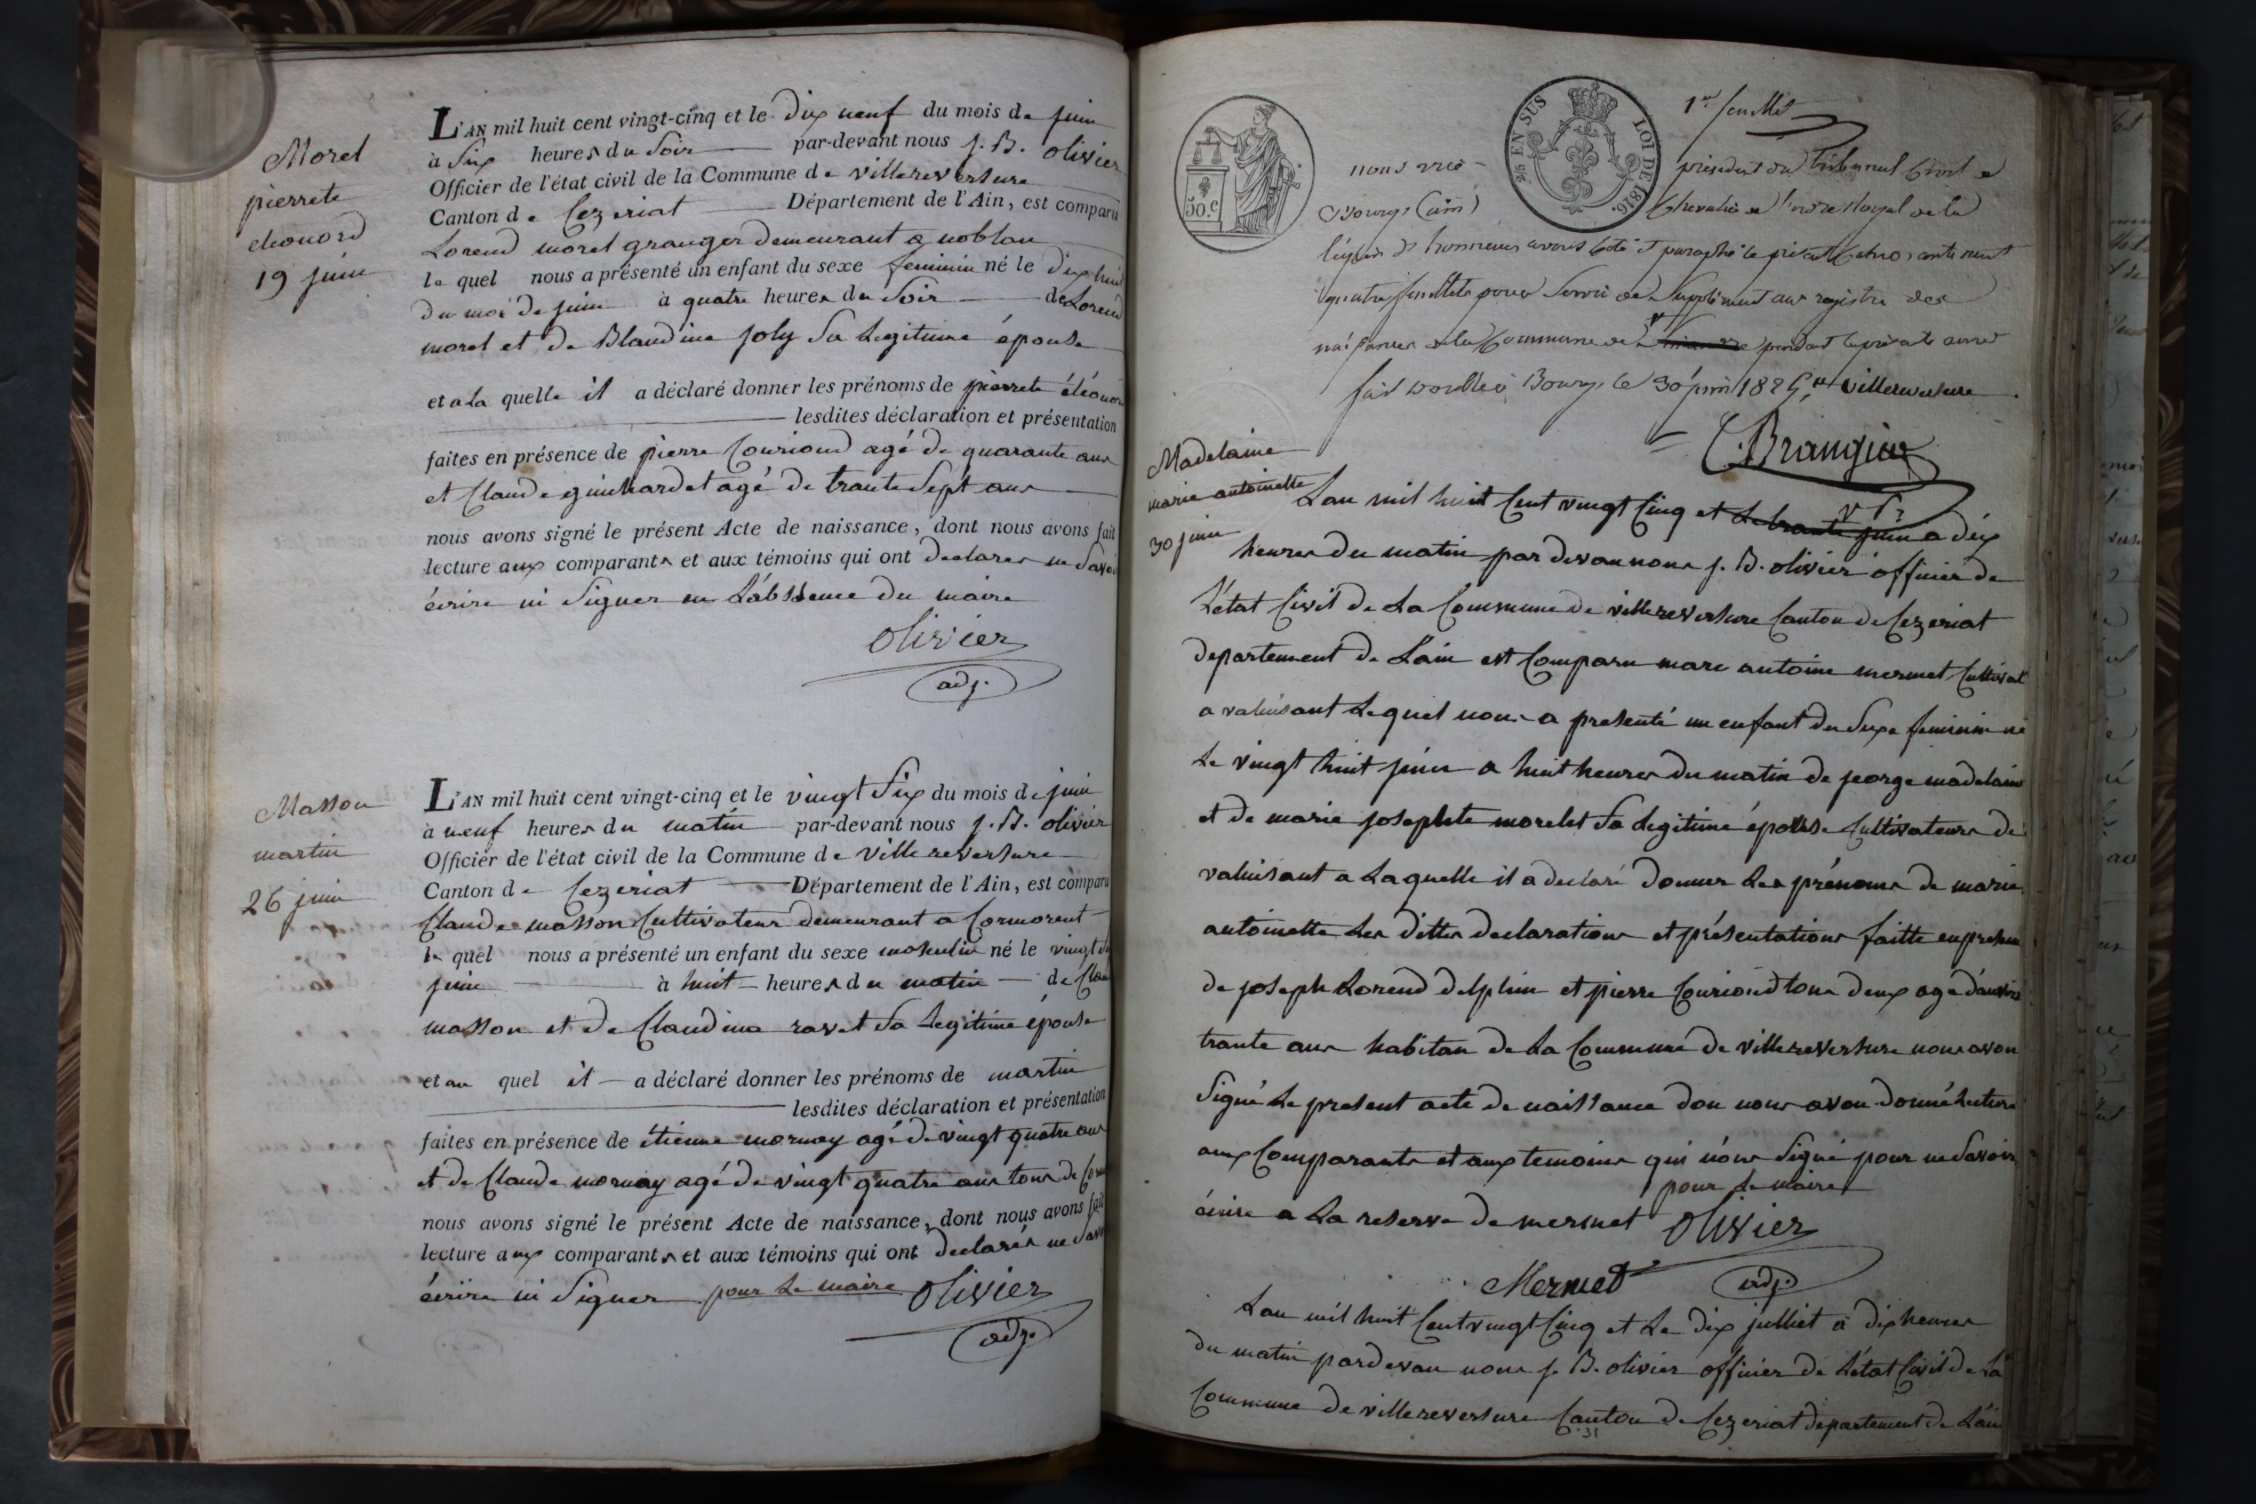 Morel
pierrete
eleonord
19 juin
L'AN mil huit cent vingt-cinq et le dix neuf du mois de juin
à Six heures du Soir par-devant nous j. B. olivier
Officier de l'état civil de la Commune de villereversure
Canton de Cezeriat Département de l'Ain, est comparu
Lorend morel granger demeurant a noblan
le quel nous a présenté un enfant du sexe feminin né le dix huit
du moi de juin à quatre heures du Soir de Lorend
morel et de Blandine joly Sa Legitime épouse
et a la quelle il a déclaré donner les prénoms de pierrete éléonor
lesdites déclaration et présentation
faites en présence de pierre Couriond agé de quarante ans
et Claude guichardet agé de trante Sept ans
nous avons signé le présent Acte de naissance, dont nous avons fait
lecture aux comparants et aux témoins qui ont declarer ne Savoi
écrire ni Signer en L'abssence du maire
olivier
adj.
Masson
martin
26 juin
L'AN mil huit cent vingt-cinq et le vingt Six du mois de juin
à neuf heures du matin par-devant nous j. B. olivier
Officier de l'état civil de la Commune de villereversure
Canton de Cezeriat Département de l'Ain, est comparu
Claude masson Cultivateur demeurant a Cormorent
le quel nous a présenté un enfant du sexe masculin né le vingt
juin à huit heures du matin de Clau
masson et de Claudine ravet Sa Legitime épouse
et au quel il a déclaré donner les prénoms de martin
lesdites déclaration et présentation
faites en présence de étienne mornay agé de vingt quatre ans
et de Claude mornay agé de vingt quatre ans tous de Corm
nous avons signé le présent Acte de naissance, dont nous avons fait
lecture aux comparants et aux témoins qui ont declarés ne Savo
écrire ni Signer pour Le maire olivier
adj.
50.c
25 EN SUS
LOI DE 1816.
1er feuillet
nous président du tribunal Civil de
Bourg (ain) Chevalier de l'ordre Royal de la
légion d'honneur avons Coté et paraphé le présent Cahier contenant
quatre feuillets pour Servir de Supplément au registre des
naissances de la Commune de pendant la présente année
fait double à Bourg, le 30 juin 1825, villereversure
C. Brangier
Madelaine
marie antoinette
30 juin
Lan mil huit Cent vingt Cinq et Le trante juin a dix
heures du matin par devan nous j. B. olivier officier de
L'état Civil de La Commune de villereversure Canton de Cezeriat
departement de L'ain est Comparu marc antoine mermet Cultivat
a valuisant Lequel nous a presenté un enfant du Sexe feminin né
Le vingt huit juin a huit heures du matin de jeorge madelain
et de marie josephte morelet Sa Legitime épouse Cultivateurs de
valuisant a Laquelle il a declaré donner Les prénoms de marie
antoinette Les dittes declarations et présentations faitte en presen
de joseph Lorend delphin et pierre Couriond tous deux agé d'anvir
trante ans habitan de La Commune de villereversure nous avon
Signé Le present acte de naissance don nous avon donné Lecture
aux Comparants et aux temoins qui n'ons Signé pour ne Savoir
écrire a La reserve de mermet pour Le maire
olivier
adj.
Mermet
Lan mil huit Cent vingt Cinq et Le dix julliet à dix heures
du matin pardevan nous j. B. olivier officier de L'état Civil de La
Commune de villereversure Canton de Cezeriat departement de L'ain
31